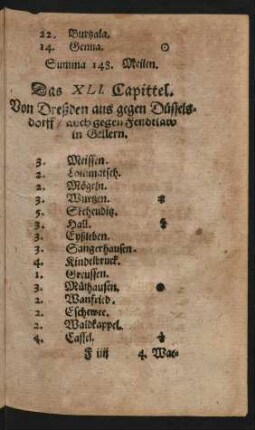 22. Burzala.
14. Genua.
Summa 148. Meilen.
Das XLI. Capittel.
Von Dreßden aus gegen Düssels-
dorff / auch gegen
in Gellern.
3. Meissen.
2. Lommatsch.
2. Mögeln.
3. Wurtzen.
5. Scheudig.
3. Hall.
3. Eyßleben.
3. Sangerhausen.
4. Kindelbruck.
1. Greussen.
3. Mülhausen.
2. Wanfried.
2. Eschewee.
2. Waldkappel.
4. Cassel.
F iiij 4. War-